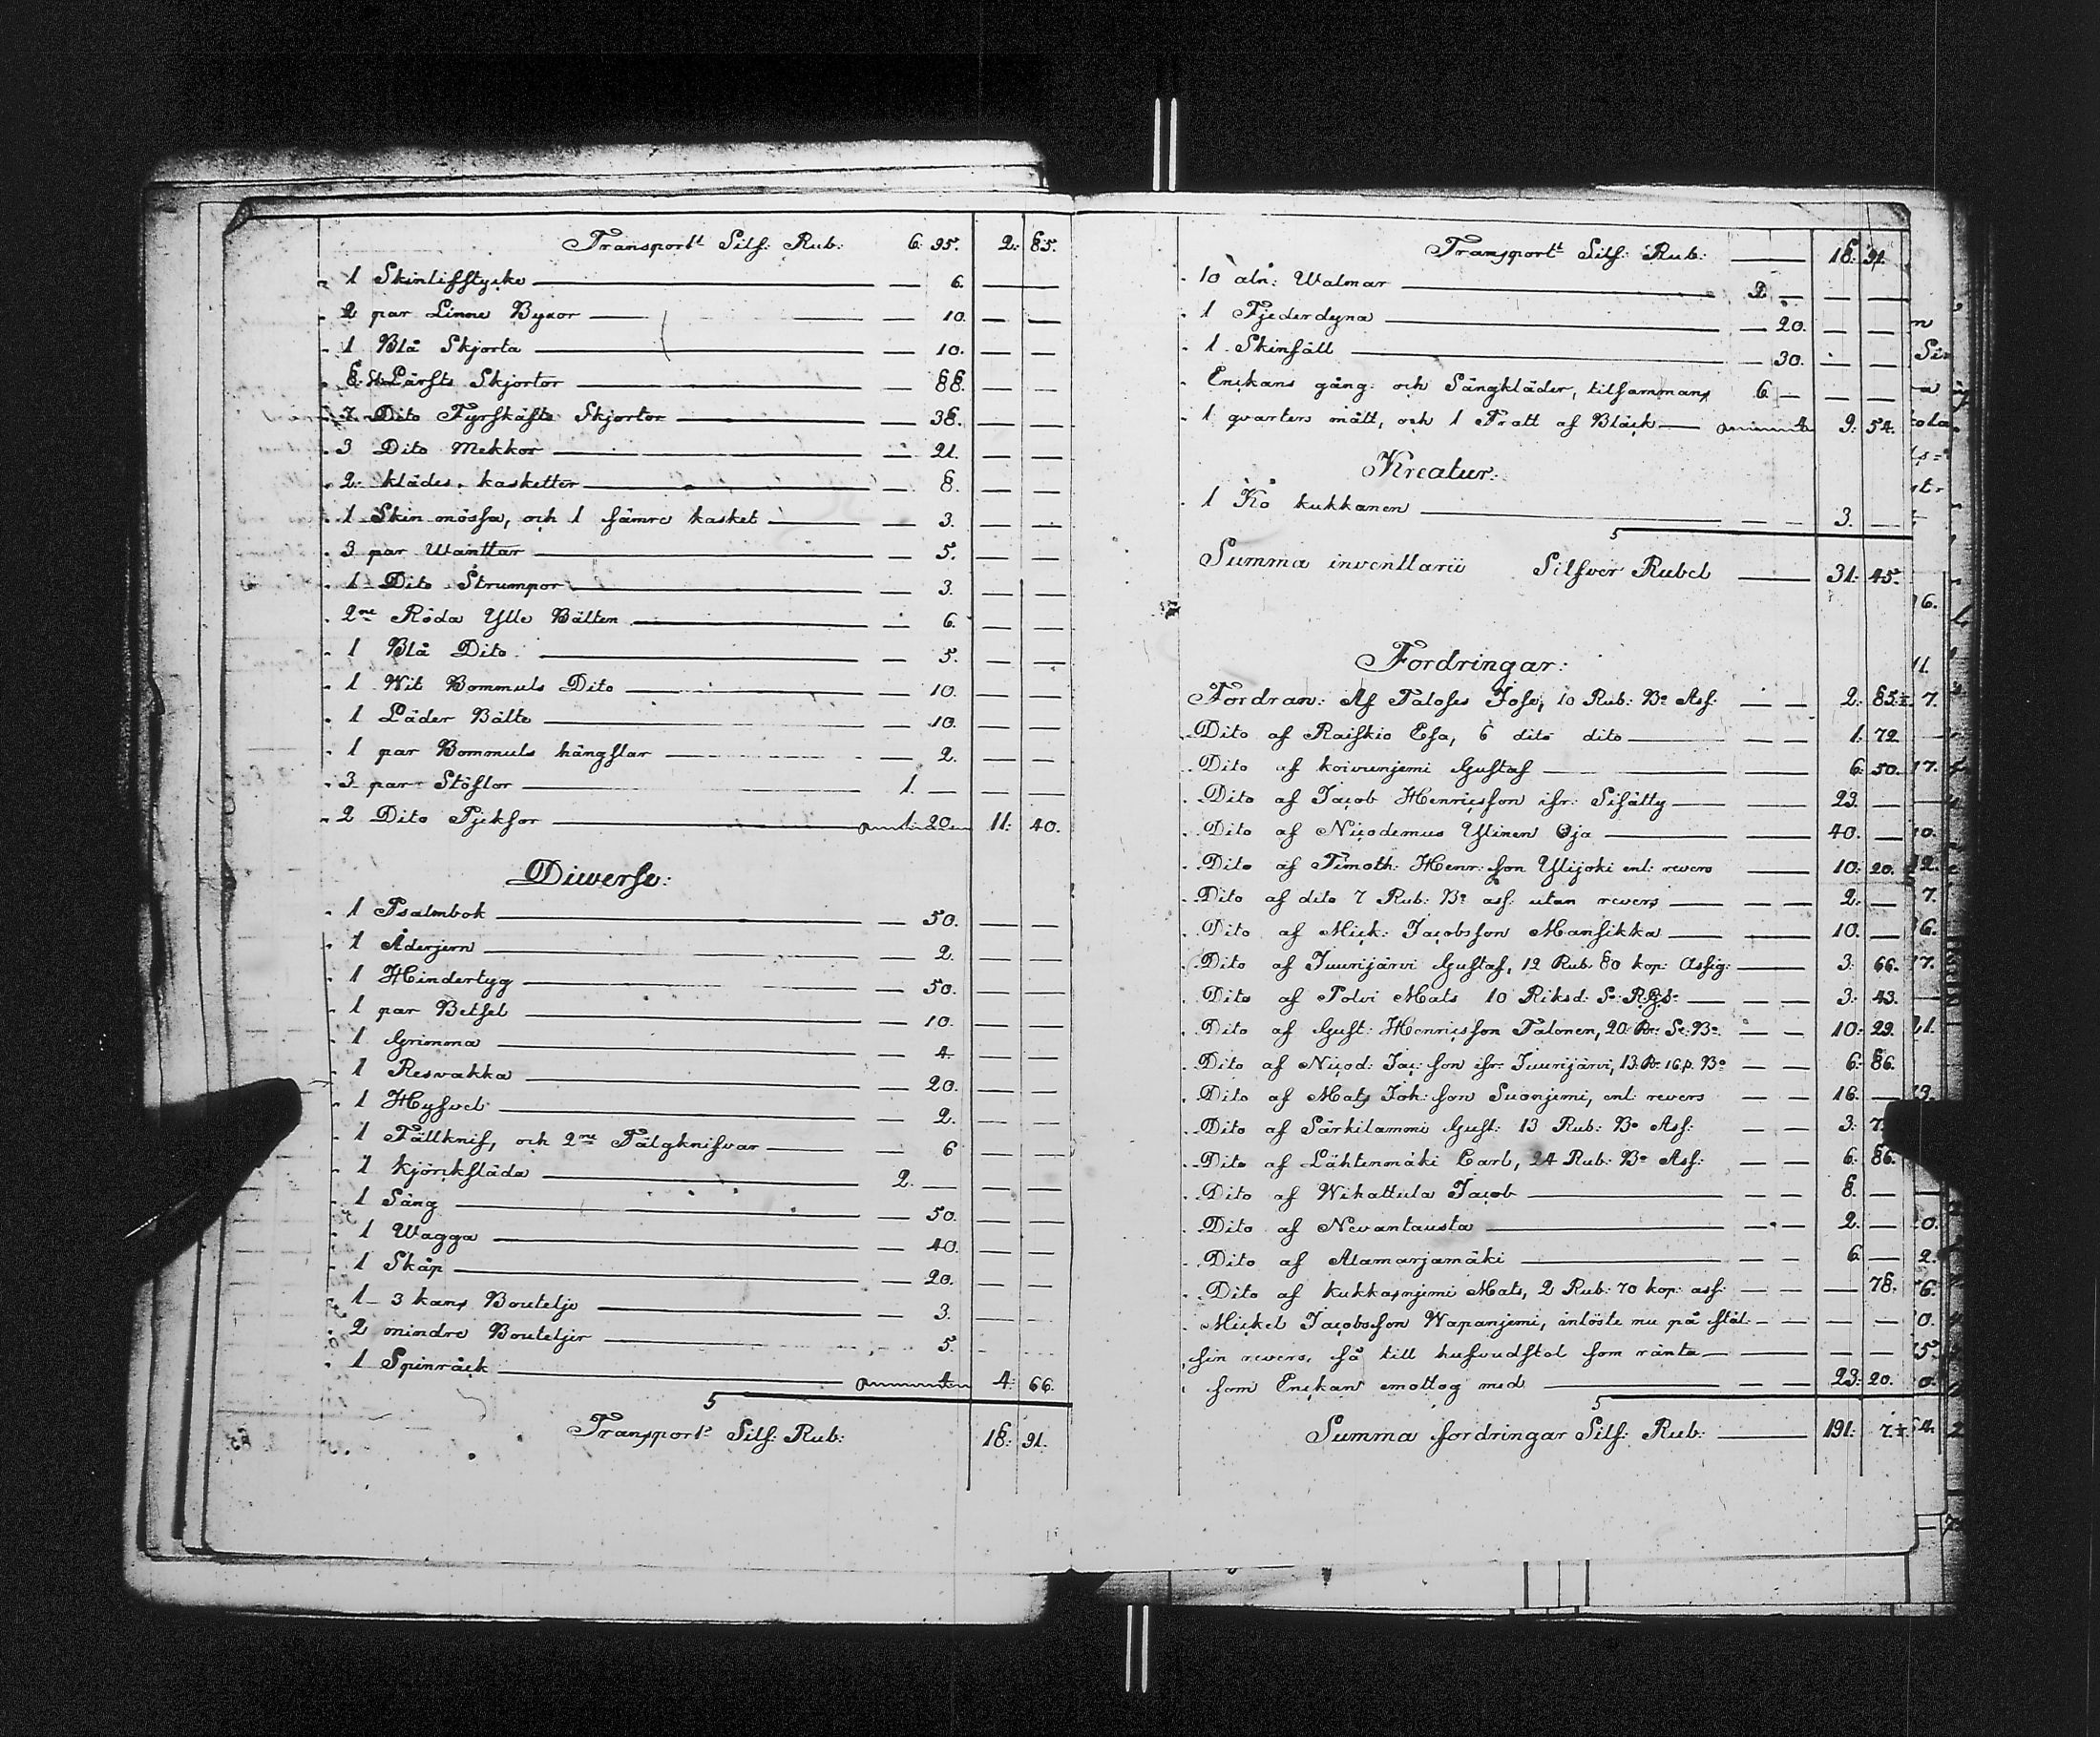 Transport:t Silf: Rub: 6. 95. 2: 85.
1 Skinlifstycke — 6.
2 par Linne Byxor — 10.
1 Blå Skjorta — 10.
8. St. Lärfts Skjortor — 88.
7 Dito Fyrskäfts Skjortor — 38.
3 Dito Mekkor — 21.
2 klädes kasketter — 8.
1 Skin mössa, och 1 sämre kasket — 3.
3 par Wanttar — 5.
1 Dito Strumpor — 3.
2ne Röda Ylle Bälten — 6.
1 Blå Dito — 5.
1 Wit Bommuls Dito — 10.
1 Läder Bälte — 10.
1 par Bommuls hängslar — 2.
3 par Stöflor — 1. —
2 Dito Pjeksor — 1. 20. 11: 40.
Diverse:
1 Psalmbok — 50.
1 Åderjern — 2.
1 Hindertyg — 50.
1 par Betsel — 10.
1 Grimma — 4.
1 Resvakka — 20.
1 Hyfvel — 2.
1 Fällknif, och 2ne Tälgknifvar — 6
1 kjörcksläda — 2. —
1 Säng — 50.
1 Wagga — 40.
1 Skåp — 20.
1 3 kans Boutelje — 3.
2 mindre Bouteljer — 5.
1 Spinråck — 4. 4: 66.
Transport: Silf: Rub: 18: 91.
Transport:t Silf: Rub: — 18: 91.
10 aln: Walmar — 2 —
1 Fjederdyna — 20.
1 Skinfäll — 30.
Enckans gång och Sängkläder, tilsammans 6 —
1 qvarters mått, och 1 Tratt af Bläck — 4 9: 54.
Kreatur:
1 Ko kukkanen — 3. —
Summa inventtarii Silfver Rubel — 31: 45.
Fordringar:
Fordran: Af Taloses Josef, 10 Rub: Bo Asf: — 2: 85
Dito af Raiskio Esa, 6 dito dito — 1: 72
Dito af koivunjemi Gustaf — 6: 50.
Dito af Jacob Henricsson ifr: Sisätty — 23. —
Dito af Nicodemus Ylinen Oja — 40. —
Dito af Timoth: Henr: son Ylijoki enl: revers — 10: 20.
Dito af dito 7 Rub: Bo asf: utan revers — 2. —
Dito af Mick: Jacobsson Mansikka — 10. —
Dito af Juurijärvi Gustaf, 12 Rub. 80 kop: Assig: — 3: 66.
Dito af Polvi Mats 10 Riksd: — 3: 43.
Dito af Gust: Henricsson Talonen, 20 — 10: 29.
Dito af Nicod: Jac: son ifr: Juurijärvi, 13 — 6: 86.
Dito af Mats Joh: son Suonjemi, enl: revers — 16. —
Dito af Särkilammi Gust: 13 Rub: Bo Asf: — 3: 7
Dito af Lähtenmäki Carl, 24 Rub: Bo Asf: — 6: 86.
Dito af Wihattula Jacob — 8. —
Dito af Nevantausta — 2. —
Dito af Alamarjamäki — 6 —
Dito af kukkasnjemi Mats, 2 Rub: 70 kop: asf: — 78.
Mickel Jacobsson Wapanjemi, inlöste nu på stäl: —
sin revers, så till hufvudstol som ränta —
som Enckan emottog med — 23: 20.
Summa fordringar Silf: Rub: — 191: 7